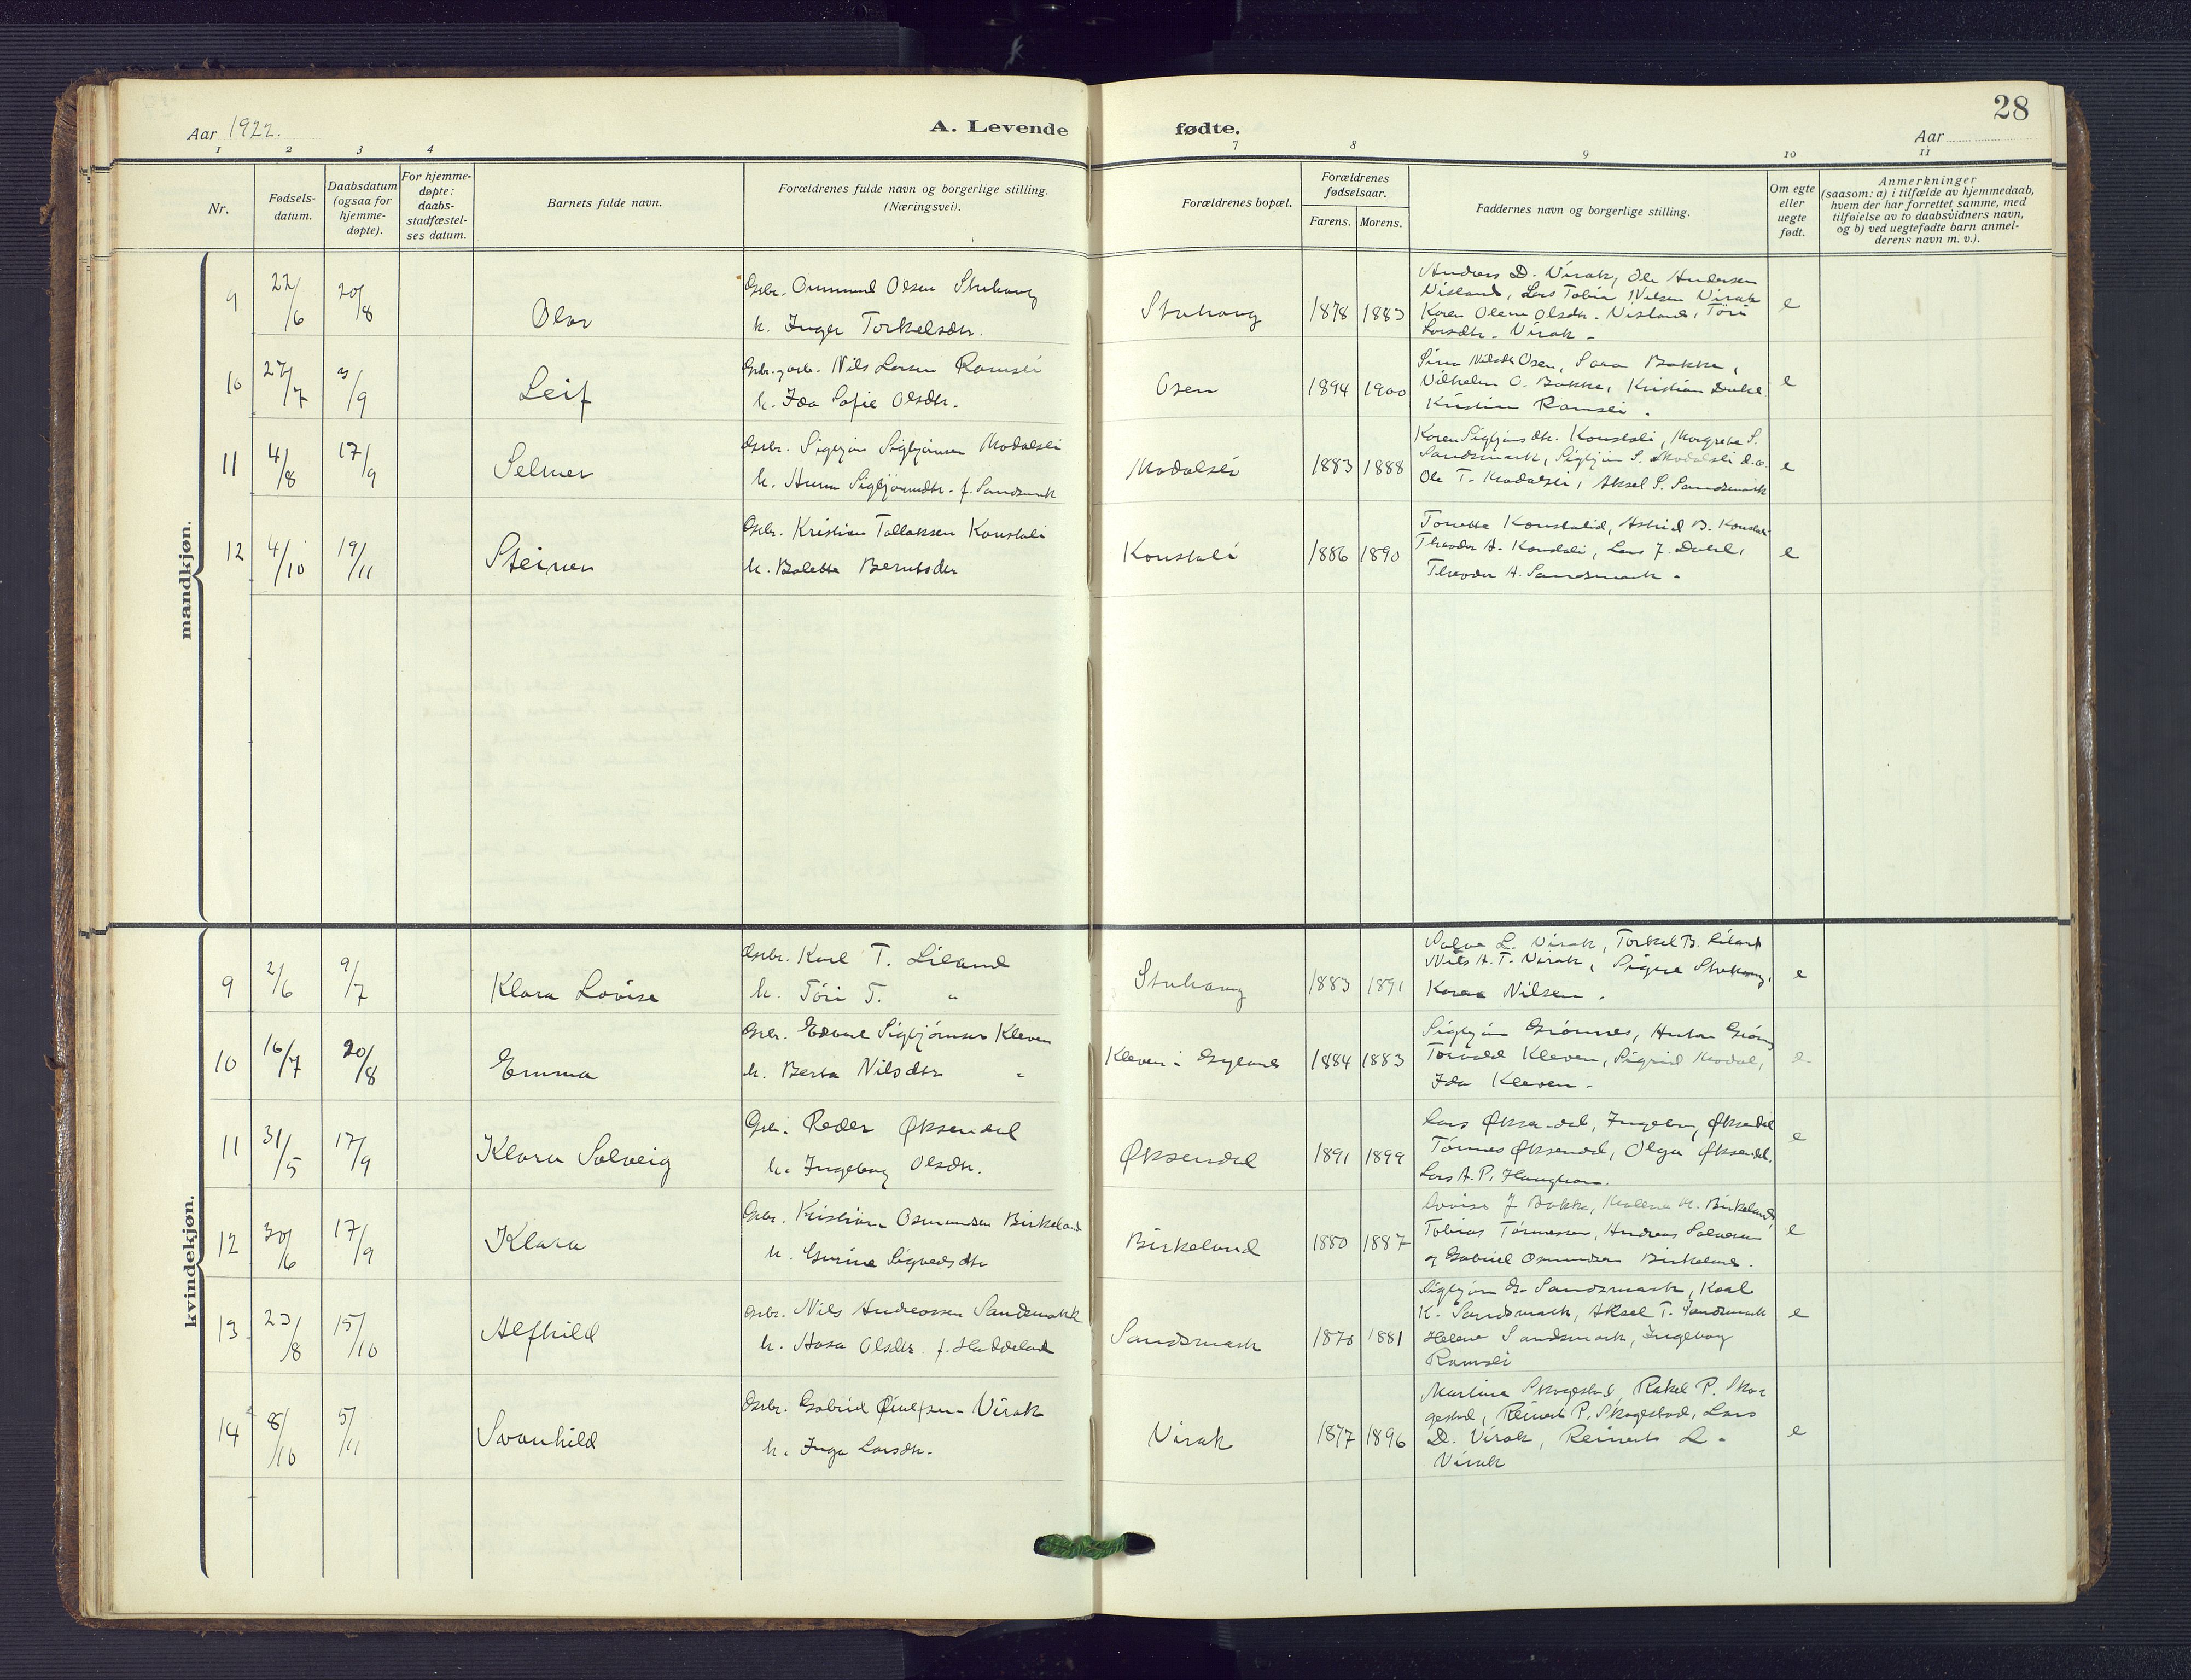 28
Aar 1922.
A. Levende fødte.
Aar
1 2 3 4 7 8 9 10 11
Nr.
Fødsels-
datum.
Daabsdatum
(ogsaa for
hjemme-
døpte).
For hjemme-
døpte:
daabs-
stadfæstel-
ses datum.
Barnets fulde navn.
Forældrenes fulde navn og borgerlige stilling.
(Næringsvei).
Forældrenes bopæl.
Forældrenes
fødselsaar.
Farens. Morens.
Faddernes navn og borgerlige stilling.
Om egte
eller
uegte
født.
Anmerkninger
(saasom: a) i tilfælde av hjemmedaab,
hvem der har forrettet samme, med
tilføielse av to daabsvidners navn,
og b) ved uegtefødte barn anmel-
derens navn m. v.).
mandkjøn.
9 22/6 20/8 Olav
Gbr. Ommund Olsen Stuhaug
h. Inger Torkelsdtr.
Stuhaug 1878 1883
Anders D. Virak, Ole Andersen
Nisland, Lars Tobia Nilsen Virak
Karen Olene Olsdtr. Nisland, Tøri
Larsdtr. Virak.
e
10 27/7 3/9 Leif
Nils Larsen Ramsei
h. Ida Sofie Olsdtr.
Osen 1894 1900
Sina Nilsdtr Osen, Sara Bakke,
Vilhelm O. Bakke, Kristian
Kristian Ramsei.
e
11 4/8 17/9 Selmer
Gbr. Sigbjørn Sigbjørnsen Modalsli
h. Anna Sigbjørnsdtr. f. Sandsmark
Modalsli 1883 1888
Karen Sigbjørnsdtr. Konstali, Margrete S.
Sandsmark, Sigbjørn S. Modalsli
Ole T. Modalsli, Aksel S. Sandsmark
e
12 4/10 19/11 Steinar
Gbr. Kristian Tallaksen Konstali
h. Bolette Berntsdtr
Konstali 1886 1890
Tonette Konstalid, Astrid B. Konstali
Theodor A. Konstali, Lars J.
Theodor A. Sandsmark.
e
kvindekjøn.
9 2/6 9/7 Klara Lovise
Gbr. Karl T. Liland
h. Tøri T. "
Stuhaug 1883 1891
L. Virak, Torkel B. Liland
Nils A. T. Virak, Signe Stuhaug,
Karen Nilsen.
e
10 16/7 20/8 Emma
Gbr. Edvard Sigbjørnsen Kleven
h. Berta Nilsdtr "
Kleven i Gyland 1884 1883
Sigbjørn Grønnes, Anton
Torvald Kleven, Sigrid Modal,
Ida Kleven.
e
11 31/5 17/9 Klara Solveig
Gbr. Peder Øksendal
h. Ingeborg Olsdtr.
Øksendal 1891 1899
Lars Øksendal, Ingeborg Øksendal
Tønnes Øksendal, Olga Øksendal.
Lars A. P. Haughom.
e
12 30/6 17/9 Klara
Gbr. Kristian Osmundsen Birkeland
h. Gurine Sigvedsdtr
Birkeland 1880 1887
Lovise J Bakke, Malene M. Birkeland,
Tobias Tønnessen, Andreas Salvesen
og Gabriel Osmundsen Birkeland.
e
13 23/8 15/10 Alfhild
Gbr. Nils Andreassen Sandsmark
h. Aasa Olsdtr. f. Haddeland
Sandsmark 1870 1881
Sigbjørn G. Sandsmark, Karl
K. Sandsmark, Aksel T. Sandsmark
Helene Sandsmark, Ingeborg
Ramsei
e
14 8/10 5/11 Svanhild
Gbr. Gabriel Virak
h. Inga Larsdtr.
Virak 1877 1896
Martina Skogestad, Rakel P. Sko-
gestad, Reinert P. Skogestad, Lars
D. Virak, Reinert L.
Virak
e